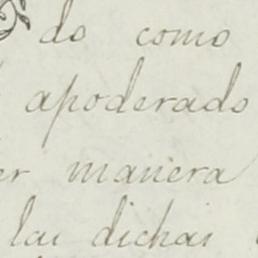 do como
apoderado
er manera
las dichas